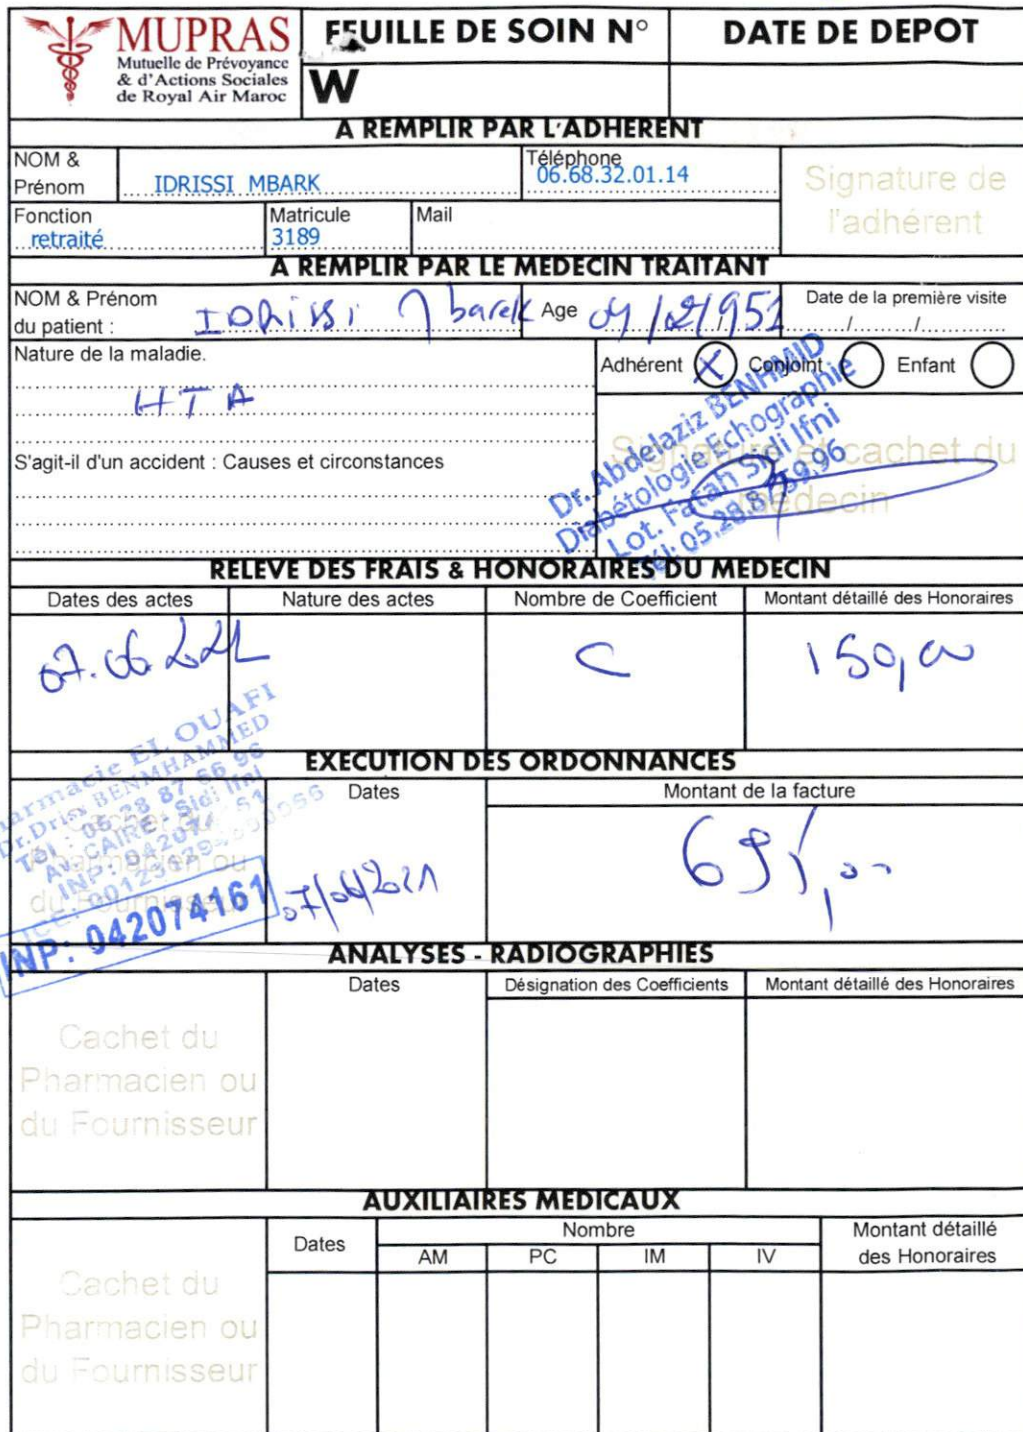 MUPRAS
Mutuelle de Prévoyance
& d'Actions Sociales
de Royal Air Maroc
FEUILLE DE SOIN N°
W
DATE DE DEPOT
A REMPLIR PAR L'ADHERENT
NOM &
Prénom
IDRISSI MBARK
Téléphone
06.68.32.01.14
Signature de
l'adhérent
Fonction
retraité
Matricule
3189
Mail
A REMPLIR PAR LE MEDECIN TRAITANT
NOM & Prénom
du patient :
IDRISSI Mbarek
Age
Date de la première visite
Nature de la maladie.
HTA
Adhérent X Conjoint Enfant
S'agit-il d'un accident : Causes et circonstances
Signature et cachet du
médecin
Dr. Abdelaziz BENHMID
Diabétologie Echographie
Lot. Fatah Sidi Ifni
RELEVE DES FRAIS & HONORAIRES DU MEDECIN
Dates des actes Nature des actes Nombre de Coefficient Montant détaillé des Honoraires
07.06.2021 C 150,00
EXECUTION DES ORDONNANCES
Cachet du
Pharmacien ou
du Fournisseur
Pharmacie EL OUAFI
Dr. Driss BENMHAMMED
Tél : 05 28 87 66 96
Av. CAIRE - Sidi Ifni
INP: 042074161
Dates Montant de la facture
07/06/2021
ANALYSES - RADIOGRAPHIES
Cachet du
Pharmacien ou
du Fournisseur
Dates Désignation des Coefficients Montant détaillé des Honoraires
AUXILIAIRES MEDICAUX
Cachet du
Pharmacien ou
du Fournisseur
Dates
Nombre
AM PC IM IV
Montant détaillé
des Honoraires